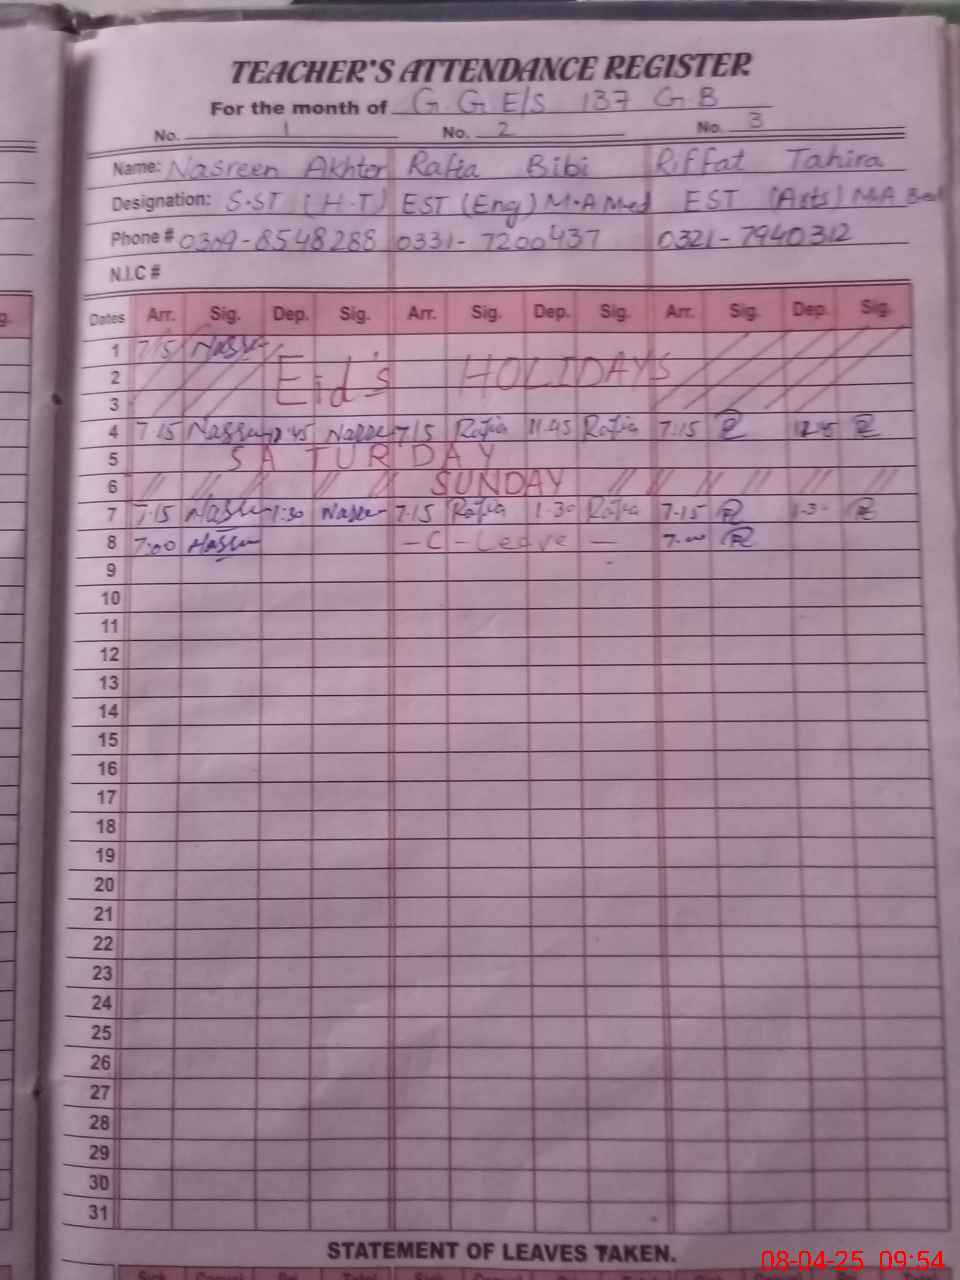 TEACHER'S ATTENDANCE REGISTER
For the month of G. G E/S 137 G B
No. 1 No. 2 No. 3
Name: Nasreen Akhtor Rafia Bibi Riffat Tahira
Designation: S.ST (H.T) EST (Eng) M.A Med EST (Arts) M.A Bed
Phone # 0309-8548288 0331-7200437 0321-7940312
N.I.C #
Dates Arr. Sig. Dep. Sig. Arr. Sig. Dep. Sig. Arr. Sig. Dep. Sig.
1 7/15
2 Eid's HOLIDAYS
3
4 7.15 7.15 Rafia 11.45 Rafia 7.15
5 SATURDAY
6 SUNDAY
7 7.15 1.30 7.15 Rafia 1.30 Rafia 7.15
8 7:00 - C - Leave - 7.00
9
10
11
12
13
14
15
16
17
18
19
20
21
22
23
24
25
26
27
28
29
30
31
STATEMENT OF LEAVES TAKEN.
08-04-25 09:54